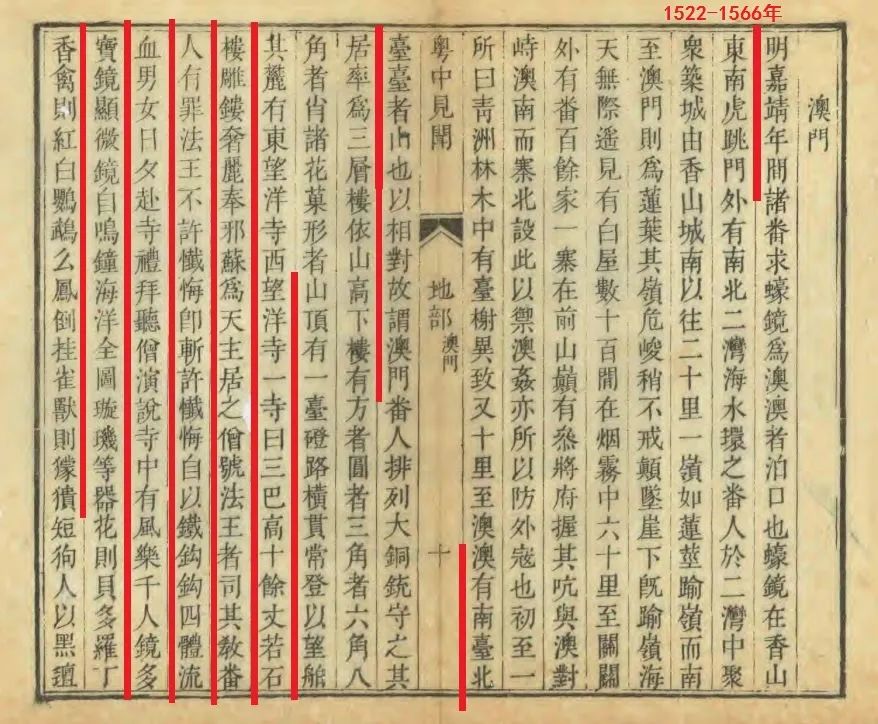 1522-1566年
澳門
明嘉靖年間諸畨求蠔鏡爲澳澳者泊口也蠔鏡在香山
東南虎跳門外有南北二灣海水環之畨人於二灣中聚
衆築城由香山城南以往二十里一嶺如蓮莖踰嶺而南
至澳門則爲蓮葉其嶺危峻稍不戒顛墜崖下旣踰嶺海
天無際遥見有白屋數十百間在烟霧中六十里至關關
外有畨百餘家一寨在前山巓有叅將府握其吭與澳對
峙澳南而寨北設此以禦澳姦亦所以防外寇也初至一
所曰青洲林木中有臺榭異致又十里至澳澳有南臺北
粵中見聞
地部
澳門
十
臺臺者山也以相對故謂澳門畨人排列大銅銃守之其
居率爲三層樓依山高下樓有方者圓者三角者六角八
角者肖諸花菓形者山頂有一臺磴路横貫常登以望舶
其麓有東望洋寺西望洋寺一寺曰三巴高十餘丈若石
樓雕鏤奢麗奉邪蘇爲天主居之僧號法王者司其敎畨
人有罪法王不許懺悔卽斬許懺悔自以鐵鈎鈎四體流
血男女日夕赴寺禮拜聽僧演說寺中有風樂千人鏡多
寶鏡顯微鏡自鳴鐘海洋全圖璇璣等器花則貝多羅丁
香禽則紅白鸚鵡么鳳倒挂雀獸則獴𤡱短狗人以黑𣰽